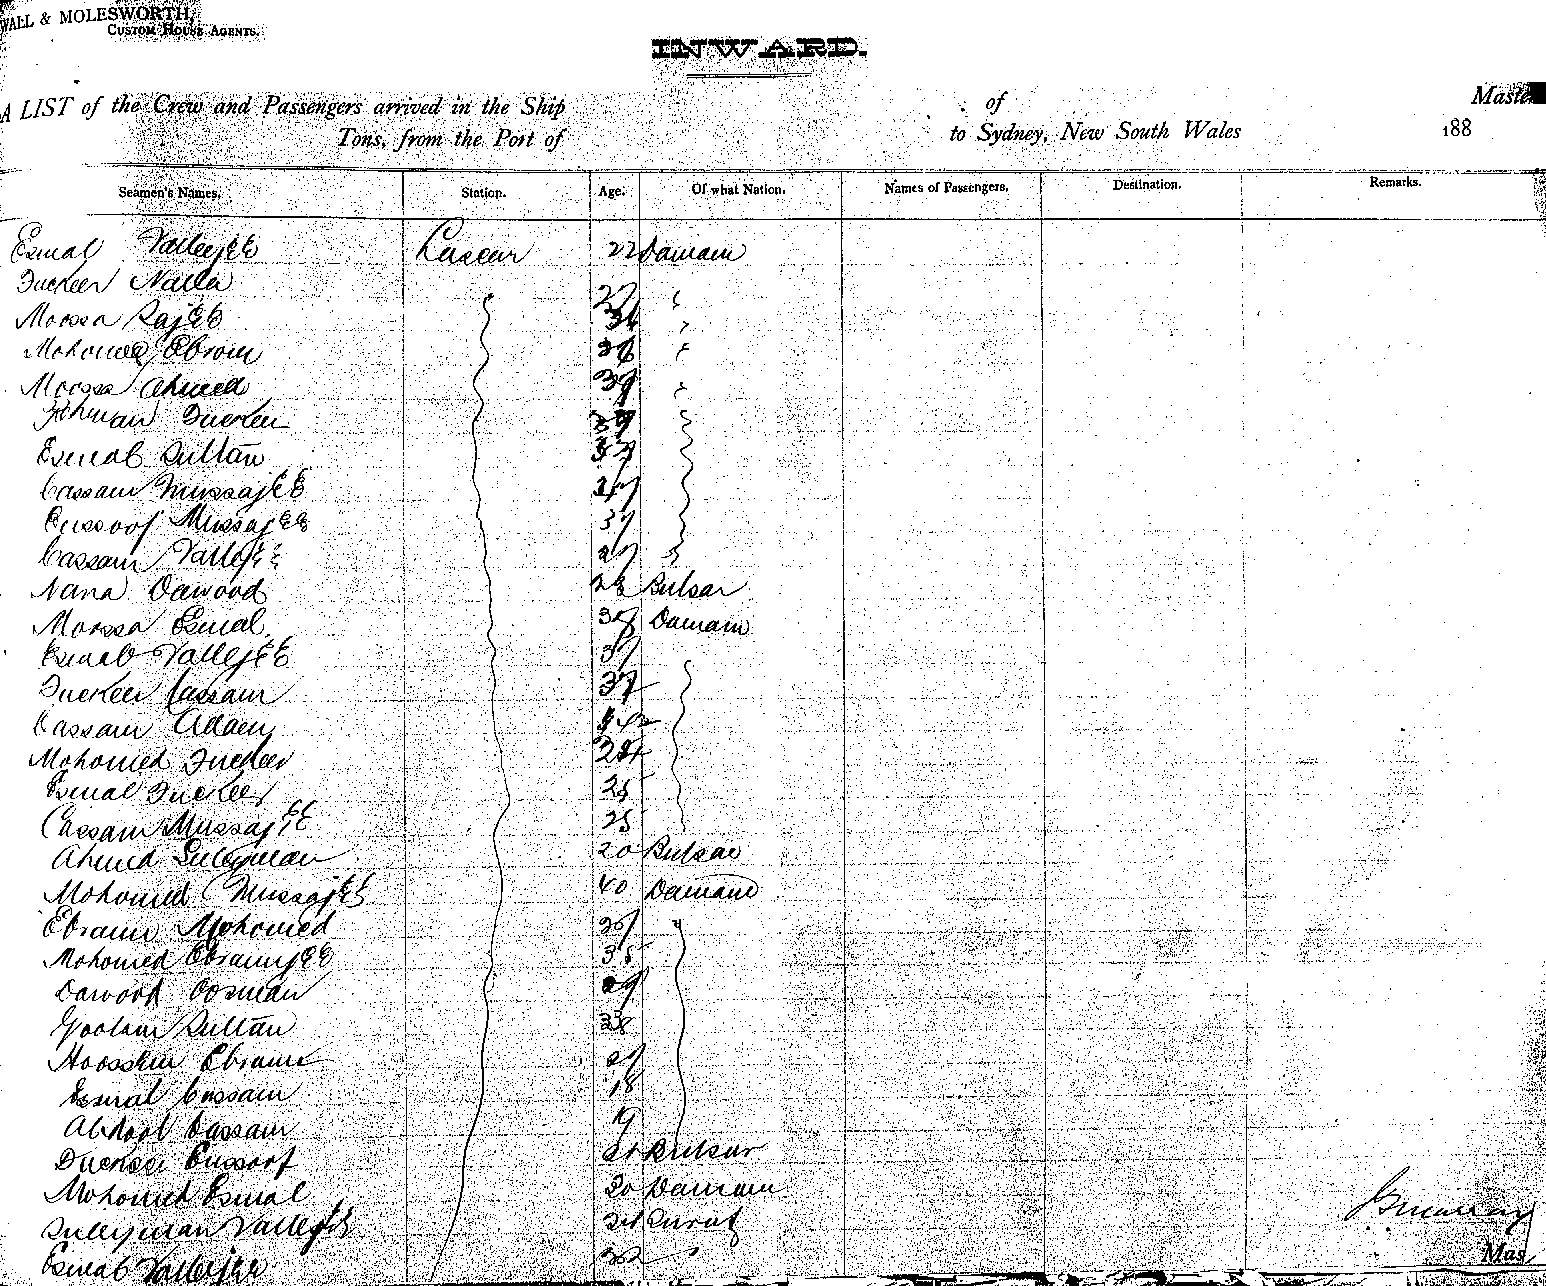 WALL & MOLESWORTH,
CUSTOM HOUSE AGENTS.
INWARD.
A LIST of the Crew and Passengers arrived in the Ship of Master
Tons, from the Port of to Sydney, New South Wales 188
Seamen's Names. Station. Age. Of what Nation. Names of Passengers. Destination. Remarks.
Esmal Vallejee Lascar 22 Damam
Fuckeer Nalla 27
Moossa Rajee
Mohomed Ebram
Moossa Ahmed
Fuckeer
Esmal Sultan
Cassam Mussajee
Eussoof Mussajee 37
Cassam Vallejee 27
Nana Dawood 28 Bulsar
Moossa Esmal Damam
Esmal Vallejee 37
Fuckeer Cassam 37
Cassam Adam
Mohomed Fuckeer
Esmal Fuckeer 25
Cassam Mussajee 25
Ahmed Suleyman 20 Bulsar
Mohomed Mussajee 40 Damam
Ebram Mohomed
Mohomed Ebramjee 35
Dawood Oosman 29
Goolam Sultan 38
Hoossein Ebram 27
Esmal Cassam 18
Abdool Cassam 19
Fuckeer Eussoof Bulsar
Mohomed Esmal 30 Damam
Suleyman Vallejee Surat
Esmal Vallejee
Murray
Mas